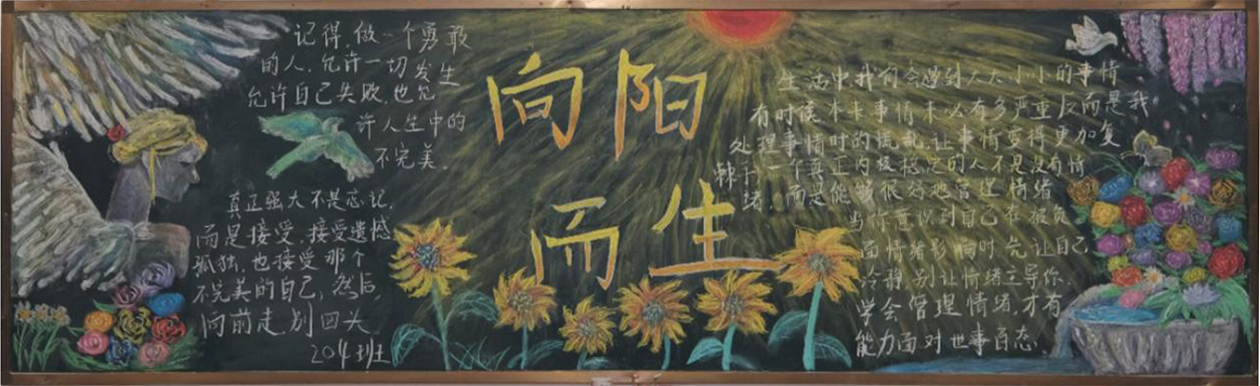 记得,做一个勇敢
的人.允许一切发生
允许自己失败,也允
许人生中的
不完美.
真正强大不是忘记,
而是接受,接受遗憾
孤独,也接受那个
不完美的自己,然后,
向前走,别回头.
204班
向阳
而生
生活中我们会遇到大大小小的事情
有时候本来事情未必有多严重反而是我
处理事情时的慌乱,让事情变得更加复
杂了一个真正内极稳定的人不是没有情
绪,而是能够很好地管理情绪
当你意识到自己在被负
面情绪影响时先让自己
冷静别让情绪主导你.
学会管理情绪,才有
能力面对世事百态.